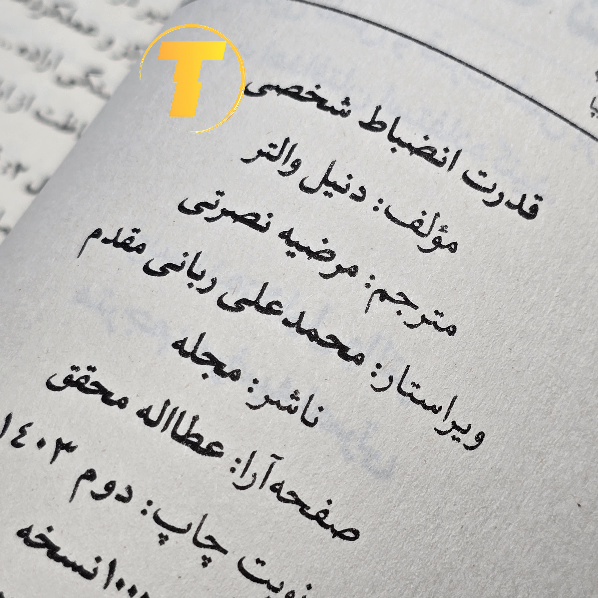 T
قدرت انضباط شخصی
مؤلف: دنیل والتر
مترجم: مرضیه نصرتی
ویراستار: محمدعلی ربانی مقدم
ناشر: مجله
صفحه‌آرا: عطااله محقق
نوبت چاپ: دوم ۱۴۰۳
۱۰۰۰نسخه